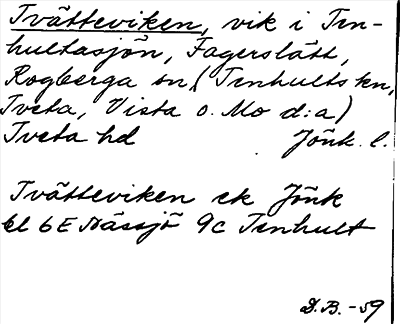 Tvätteviken, vik i Ten-
hultasjön, Fagerslätt,
Rogberga sn (Tenhults kn,
Tveta, Vista o. Mo d:a)
Tveta hd Jönk. l.
Tvätteviken ek Jönk
bl 6E Nässjö 9c Tenhult
D.B. -59